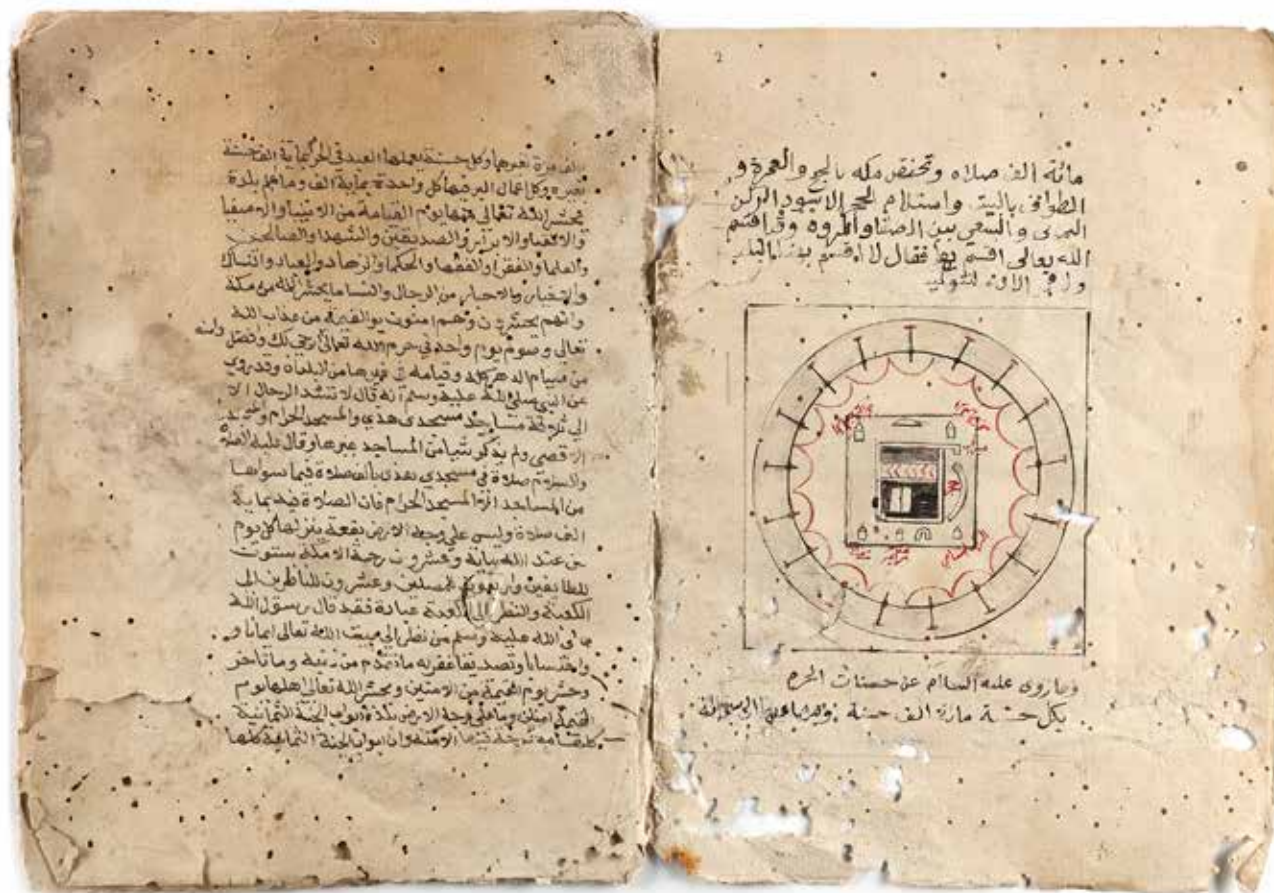 2
مائة الف صلاه وتختص مكه بالحج والعمرة و
الطواف بالبيت واستلام الحجر الاسود الركن
اليمنى والسعي بين الصفا والمروه وقد اقسم
الله تعالى اقسم بها فقال لا اقسم بهذا البلد
ولا الاوله للتوكيد
وماروى عليه السلام عن حسنات الحرم
بكل حسنة ماية الف حسنة
3
وكل حسنة يعملها العبد في الحرم بماية الف حسنة
بغيره وكل اعمال البر فيها كل واحدة بماية الف وما اعلم بلدة
يحشر الله تعالى منها يوم القيامة من الانبيا والاصفيا
والاتقيا والابرار والصديقين والشهدا والصالحين
والعلما والفقرا والفقها والحكما والزهاد والعباد والنساك
والاخيار والاحبار من الرجال والنسا ما يحشر الله من مكة
وانهم يحشرون وهم امنون يوم القيمة من عذاب الله
تعالى وصوم يوم واحد في حرم الله تعالى ارجى لك وافضل
من صيام الدهر كله وقيامه في غيرها من البلدان وقد روي
عن النبي صلى الله عليه وسلم انه قال لا تشد الرحال الا
الى ثلاثة مساجد مسجدي هذي والمسجد الحرام والمسجد
الاقصى ولم يذكر شيا من المساجد غيرها وقال عليه الصلاة
والسلام صلاة في مسجدي هذي بالف صلاة فيما سواها
من المساجد الا المسجد الحرام فان الصلاة فيه بماية
الف صلاة وليس على وجه الارض بقعة ينزلها كل يوم
من عند الله ماية وعشرون رحمة الا مكة ستون
للطايفين واربعون للمصلين وعشرون للناظرين الى
الكعبة والنظر الى الكعبة عبادة فقد قال رسول الله
صلى الله عليه وسلم من نظر الى بيت الله تعالى ايمانا و
واحتسابا وتصديقا غفر له ما تقدم من ذنبه وما تاخر
وحشر يوم القيمة من الامنين ويحشر الله تعالى اهلها يوم
القيمة امنين وما على وجه الارض بلدة ابواب الجنة الثمانية
كلها الا مكة وان ابواب الجنة الثمانية كلها